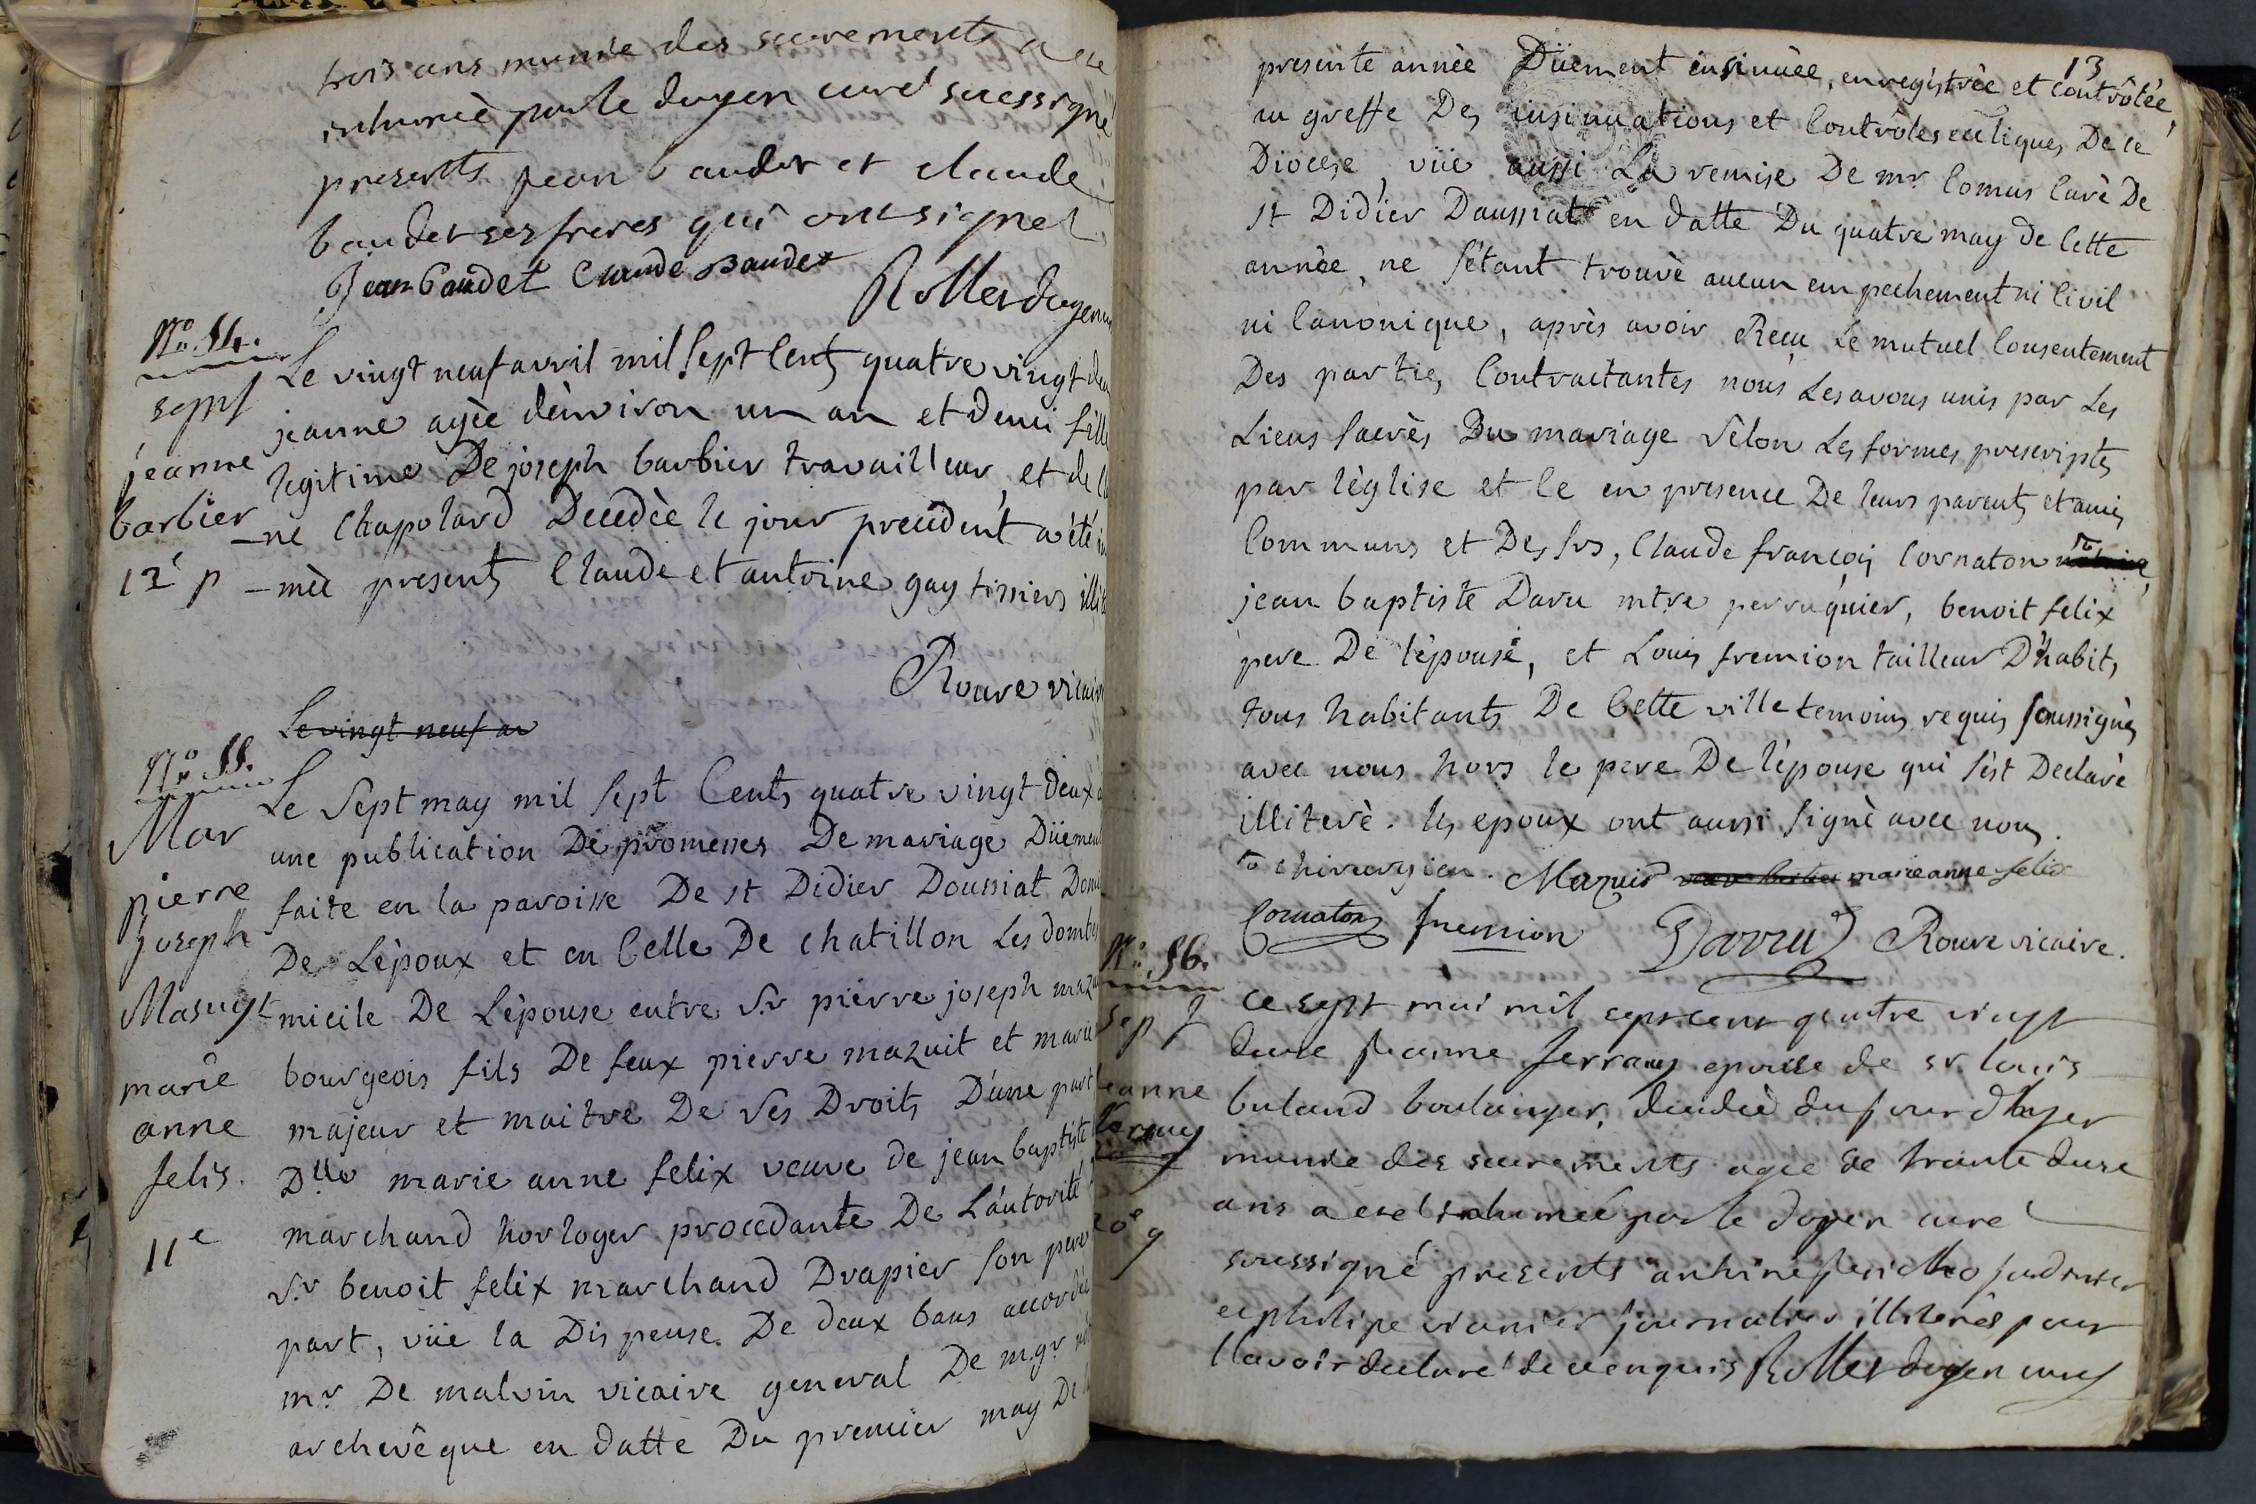 trois ans munie des sacrements a ete
inhumée par le doyen curé soussigné
presents jean baudet et claude
baudet ses freres qui ont signé
Jean baudet Claude Baudet
Rollet doyen curé
No. 54.
sepult
jeanne
barbier
12e p
Le vingt neuf avril mil sept Cents quatre vingt deux
jeanne agèe dènviron un an et demi fille
legitime De joseph barbier travailleur, et de
-ne Chapolard Decedèe le jour precedent a été
-mèe presents Claude et antoine gay tissiers
Rouve vicaire
Le vingt neuf av
No. 55.
Mar
pierre
joseph
Masuyt
marie
anne
felis.
11e
Le Sept may mil sept Cents quatre vingt deux
une publication De promesses De mariage Düement
faite en la paroisse De st Didier Doussiat
De Lèpoux et en Celle De chatillon Les dombes
micile De Lèpouse entre S.r pierre joseph
bourgeois fils De feux pierre mazuit et marie
majeur et maitre De Ses Droits D'une part
Dlle marie anne felix veuve de jean baptiste
marchand horloger procedante De Láutorité
S.r benoit felix marchand Drapier son pere
part, vüe la Dispense De deux bans accordée
mr De malvin vicaire general De m.gr
archevêque en datte Du premier may De
13
presente annèe Düement insinuèe, enregistrèe et controlèe
au greffe Des insinuations et Controles eccliques De ce
Diocese, vüe aussi La remise De mr Comus Curè De
st Didier Daussiat en datte Du quatre may de Cette
annèe, ne s'étant trouvè aucun empechement ni Civil
ni Canonique, après avoir Recu Le mutuel Consentement
Des parties Contractantes nous Les avons unis par Les
Liens Sacrès Du mariage Sèlon Les formes prescriptes
par lèglise et ce en presence De leurs parents et amis
Communs et Des srs, Claude françois Cornaton
jean baptiste Daru mtre perruquier, benoit felix
pere De lèpouse, et Louis fremion tailleur D'habits
tous habitants De Cette ville temoins requis soussignès
avec nous hors le pere De lèpouse qui s'est Declarè
illiterè. les epoux ont aussi signè avec nous.
chirurgien. Mazuis marie anne felix
Cornaton fremion Darru Rouve vicaire.
No. 56.
sep
jeanne
ferrang
20e g
Ce sept mai mil sept cent quatre vingt
deux jeanne ferrang epouse de sr louis
buland boulanger, decedeè du jour d hyer
munie des sacrements agée de trante deux
ans a eté inhumeé par le doyen curé
soussigné presents
et philipe journalier illiterès pour
l'avoir declaré de ce enquis Rollet doyen curé